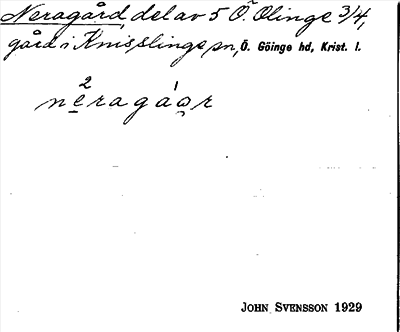 Neragård, del av 5 Ö. Olinge 3/4,
gård i Knisslinge sn, Ö. Göinge hd, Krist. l.
2 1
nęragáɷr
JOHN SVENSSON 1929